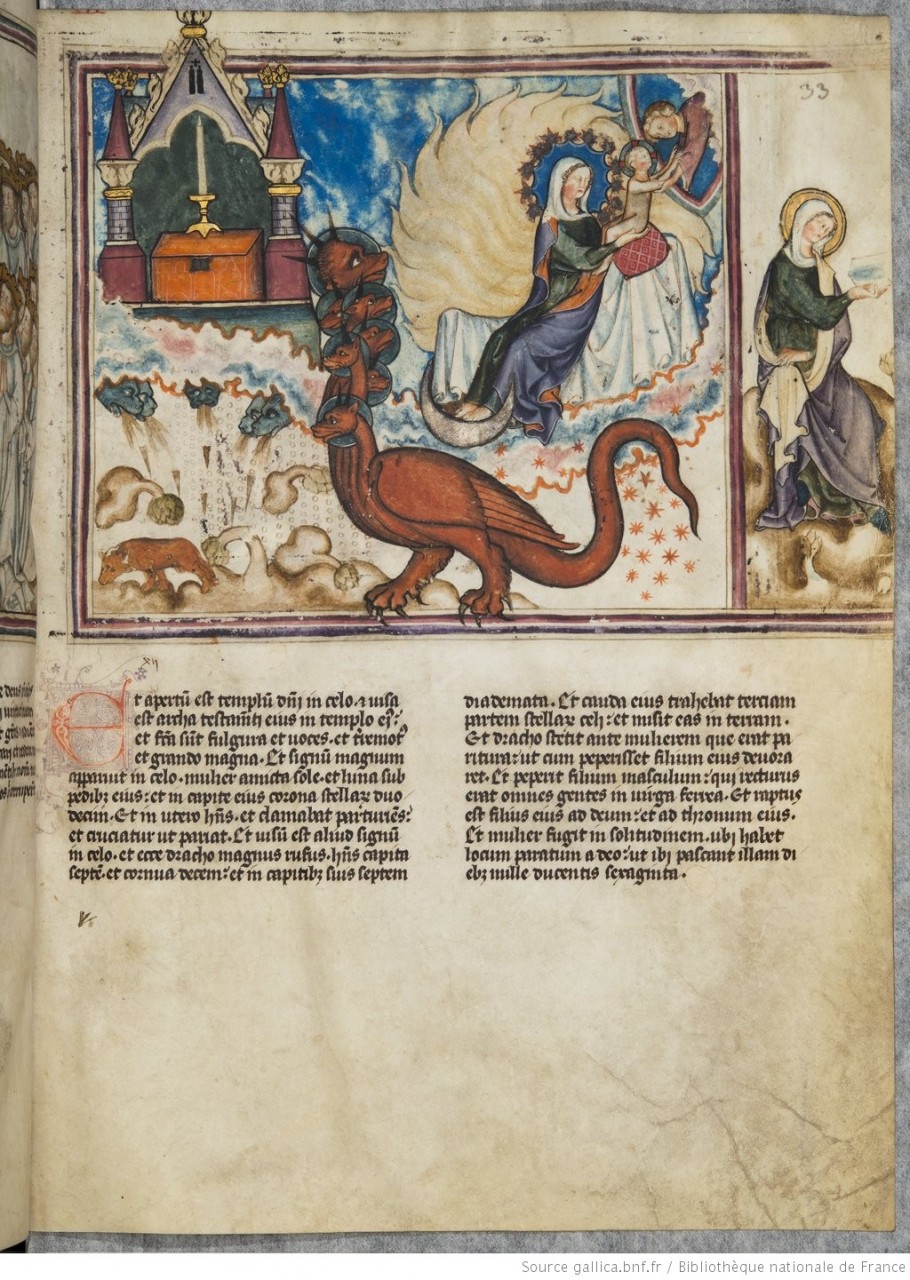 33
xij
Et apertū est templū dn̄i in celo. ⁊ uisa
est archa testam̄ti eius in templo ei᷒:
et fc̄a sūt fulgura et uoces. et t̄remot᷒
et grando magna. Et signū magnum
apparuit in celo. mulier amicta sole. et luna sub
pedibꝫ eius: et in capite eius corona stellaꝝ duo
decim. Et in utero hn̄s. et clamabat parturiēs:
et cruciatur ut pariat. Et uisū est aliud signū
in celo. et ecce dracho magnus rufus. hn̄s capita
septē. et cornua decem: et in capitibꝫ suis septem
diademata. Et cauda eius trahebat terciam
partem stellaꝝ celi: et misit eas in terram.
Et dracho stetit ante mulierem que erat pa
ritura: ut cum peperisset filium eius deuora
ret. Et peperit filium masculum: qui recturus
erat omnes gentes in uirga ferrea. Et raptus
est filius eius ad deum: et ad thronum eius.
Et mulier fugit in solitudinem. ubi habet
locum paratum a deo: ut ibi pascant illam di
ebꝫ mille ducentis sexaginta.
Source gallica.bnf.fr / Bibliothèque nationale de France